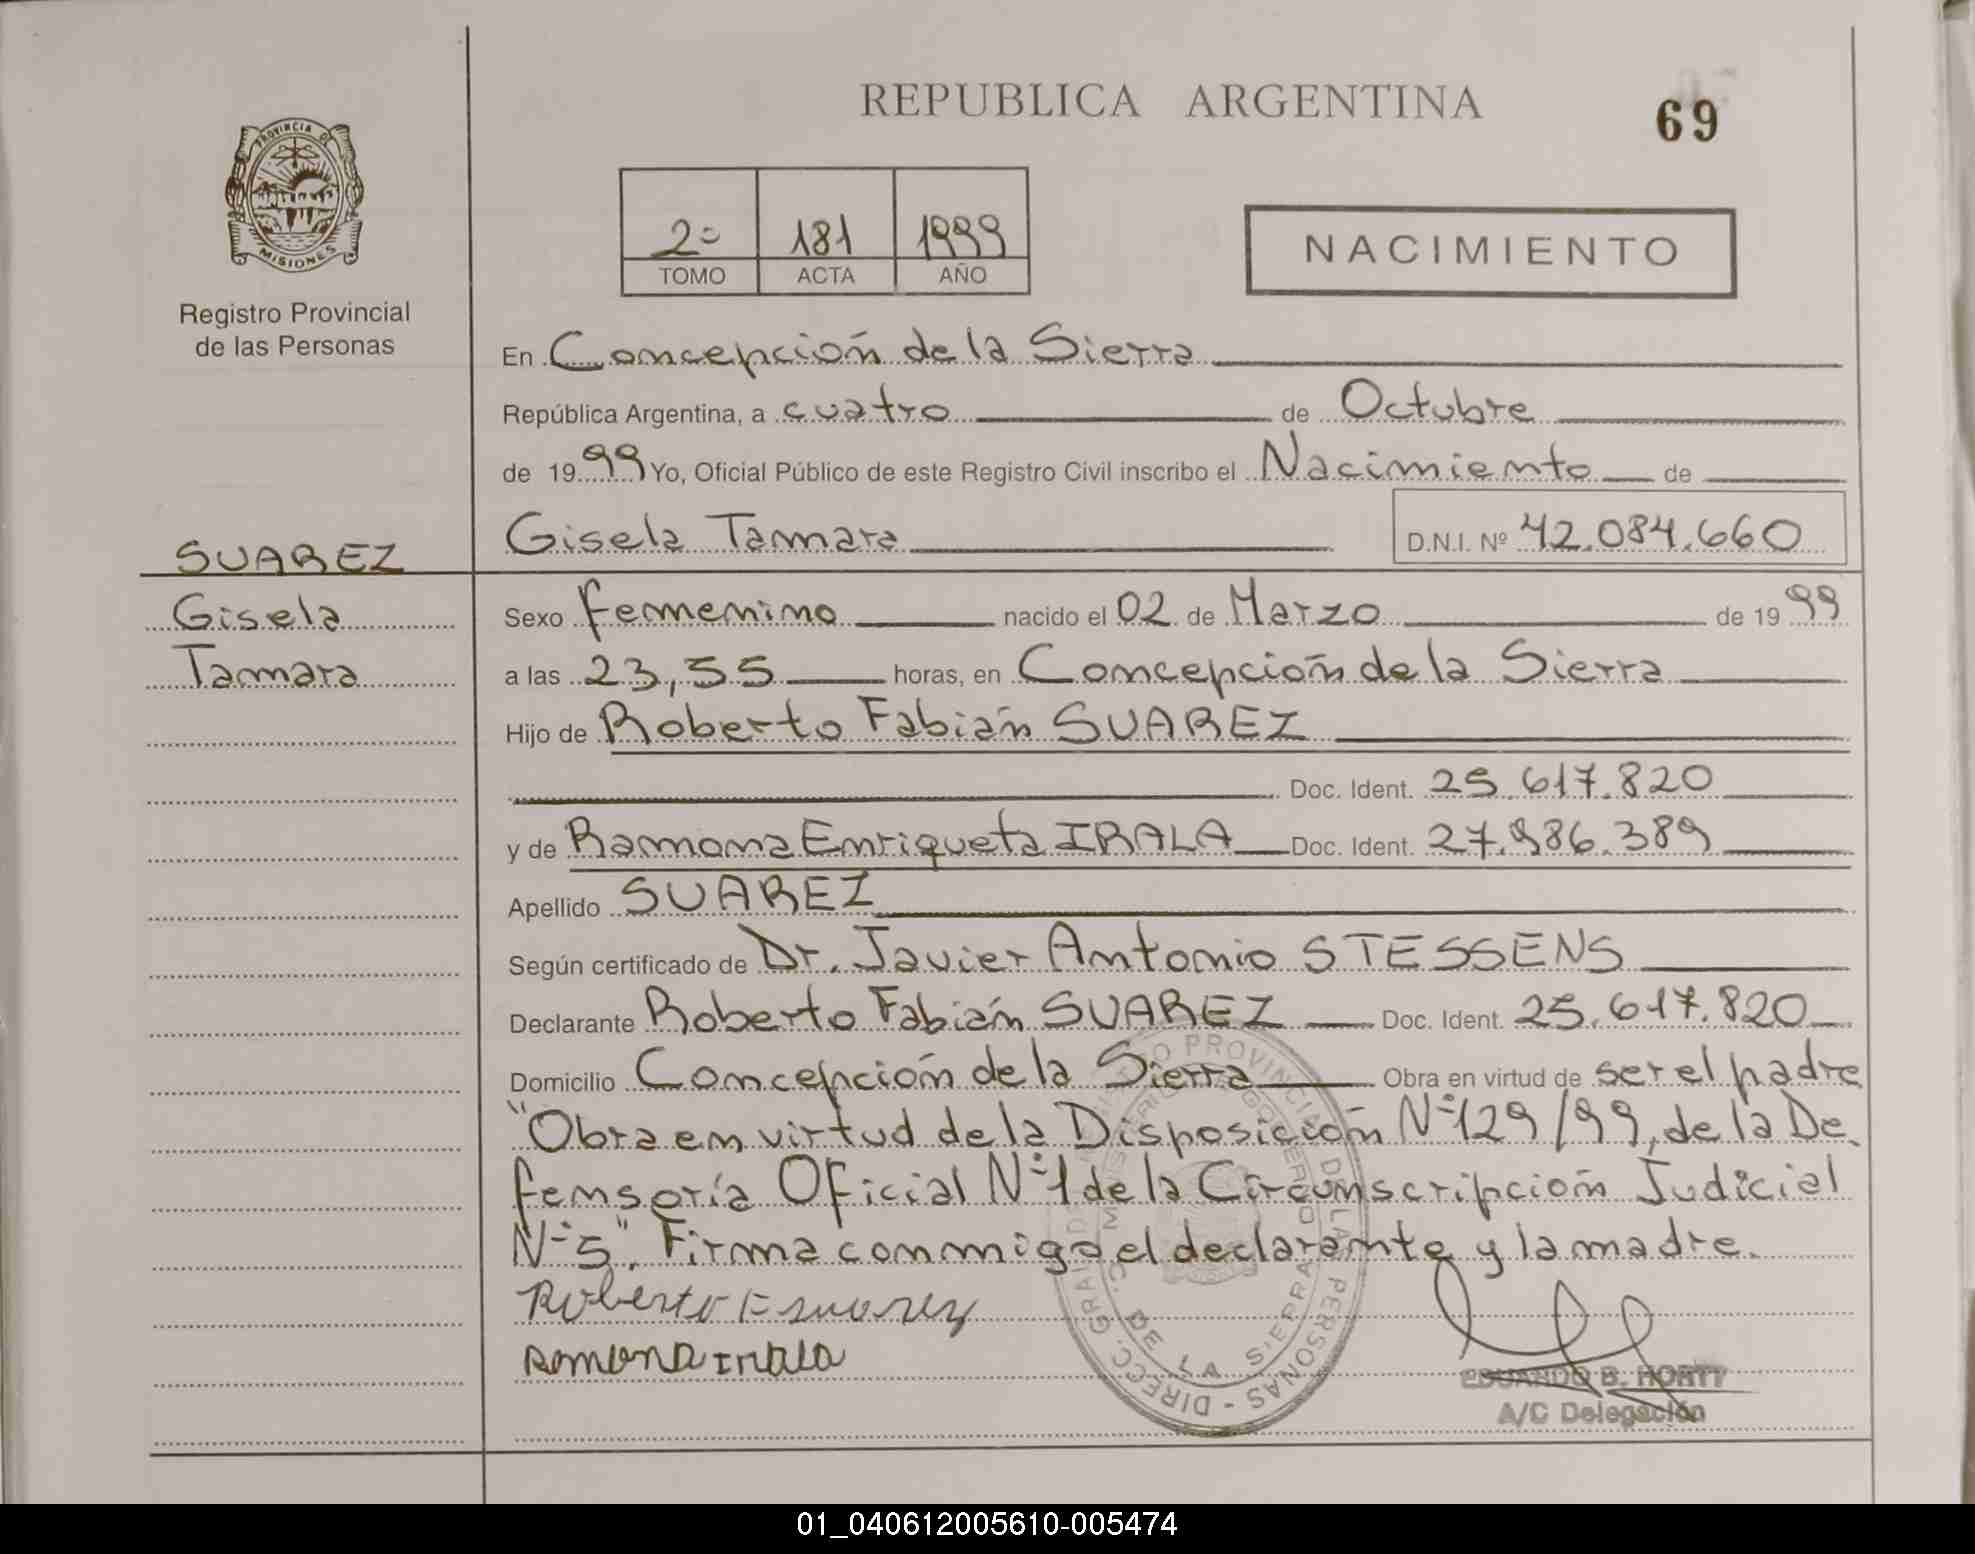 REPUBLICA ARGENTINA
69
PROVINCIA DE
MISIONES
Registro Provincial
de las Personas
2º 181 1999
TOMO ACTA AÑO
NACIMIENTO
En Concepción de la Sierra
República Argentina, a cuatro de Octubre
de 1999 Yo, Oficial Público de este Registro Civil inscribo el Nacimiento de
Gisela Tamara D.N.I. Nº 42.084.660
SUAREZ
Gisela
Tamara
Sexo femenino nacido el 02 de Marzo de 1999
a las 23,55 horas, en Concepción de la Sierra
Hijo de Roberto Fabián SUAREZ
Doc. Ident. 25.617.820
y de Ramona Enriqueta IRALA Doc. Ident. 27.986.389
Apellido SUAREZ
Según certificado de Dr. Javier Antonio STESSENS
Declarante Roberto Fabián SUAREZ Doc. Ident. 25.617.820
Domicilio Concepción de la Sierra Obra en virtud de ser el padre
"Obra en virtud de la Disposición Nº 129/99, de la De
fensoría Oficial Nº 1 de la Circunscripción Judicial
Nº 5". Firma conmigo el declarante y la madre.
Roberto F Suarez
Ramona Irala
EDUARDO B. HORTT
A/C Delegación
01_040612005610-005474